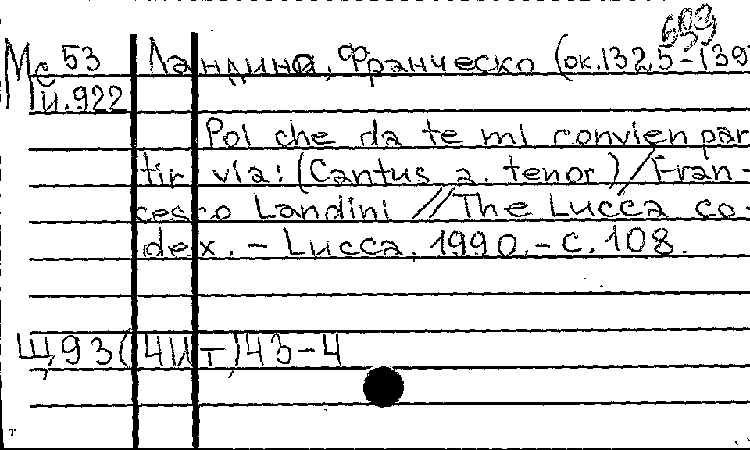 609
Мс 53 Ландино, Франческо (ок.1325-139
Й.922
Poi che da te mi convien par
tir via: (Cantus a. tenor) / Fran-
cesco Landini // The Lucca co-
dex. - Lucca, 1990. - С. 108.
Щ93(4Ит)43-4